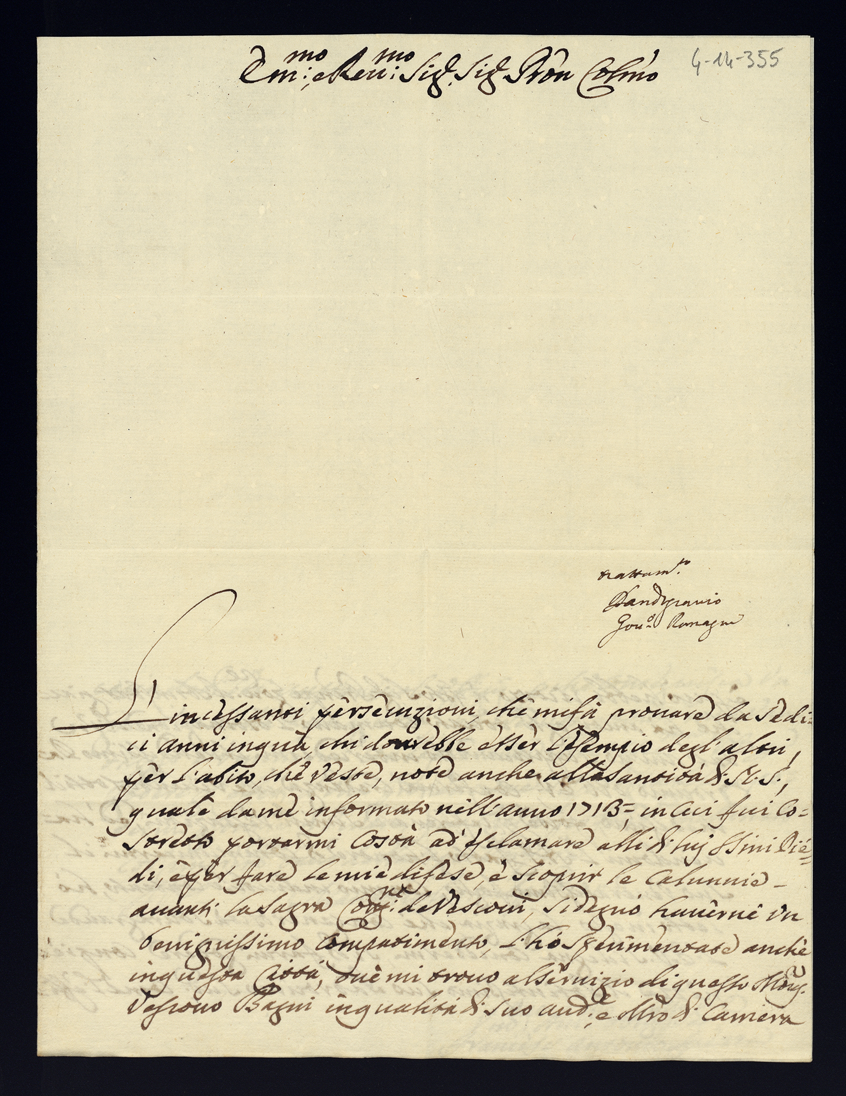 Em:mo e Reu:mo Sig.r Sig.r Pron Colmo
4-14-355
trattam.to
Gou.o Romagna
L'incessanti persecuzioni, che mi fà prouare da sedi=
ci anni in quà, chi dourebbe esser l'esempio degl'altri,
per l'abito, che veste, note anche alla Santità di N. S.,
quale da mè informato nell'anno 1713, in cui fui co=
stretto portarmi costà ad esclamare alli di lui SSmi Pie=
di, e per fare le mie difese, e scoprir le calunnie
auanti la Sagra Cong:ne de Vescoui, si degnò hauerne un
benignissimo compatimento, l'hò sperimentate anche
in questa Città, oue mi trouo al seruizio di questo Mons.
Vescouo Bagni in qualità di suo aud:e, e Mro di Camera